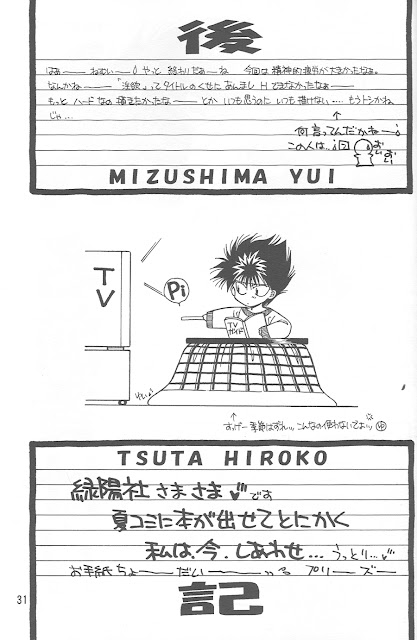 後
はぁーーー ねむいー やっと 終わりだぁーね 今回は 精神的疲労が大きかったなぁ。
なんかねーー 「淫暎」ってタイトルのくせに あんまし H できなかったなぁーー
もっと ハードなの 描きたかったなーー とか いつも思うのに いつも描けない…… もうトシかね
じゃ…
何言ってんだかねー
この人は…
おいおい
MIZUSHIMA YUI
TV
Pi
TVガイド
すっげー 季節はずれ… こんなの使わないでよ
TSUTA HIROKO
緑陽社さまさま です
夏コミに本が出せてとにかく
私は、今、しあわせ… うっとり…
お手紙ちょーーだいーー プリーズー
31
記